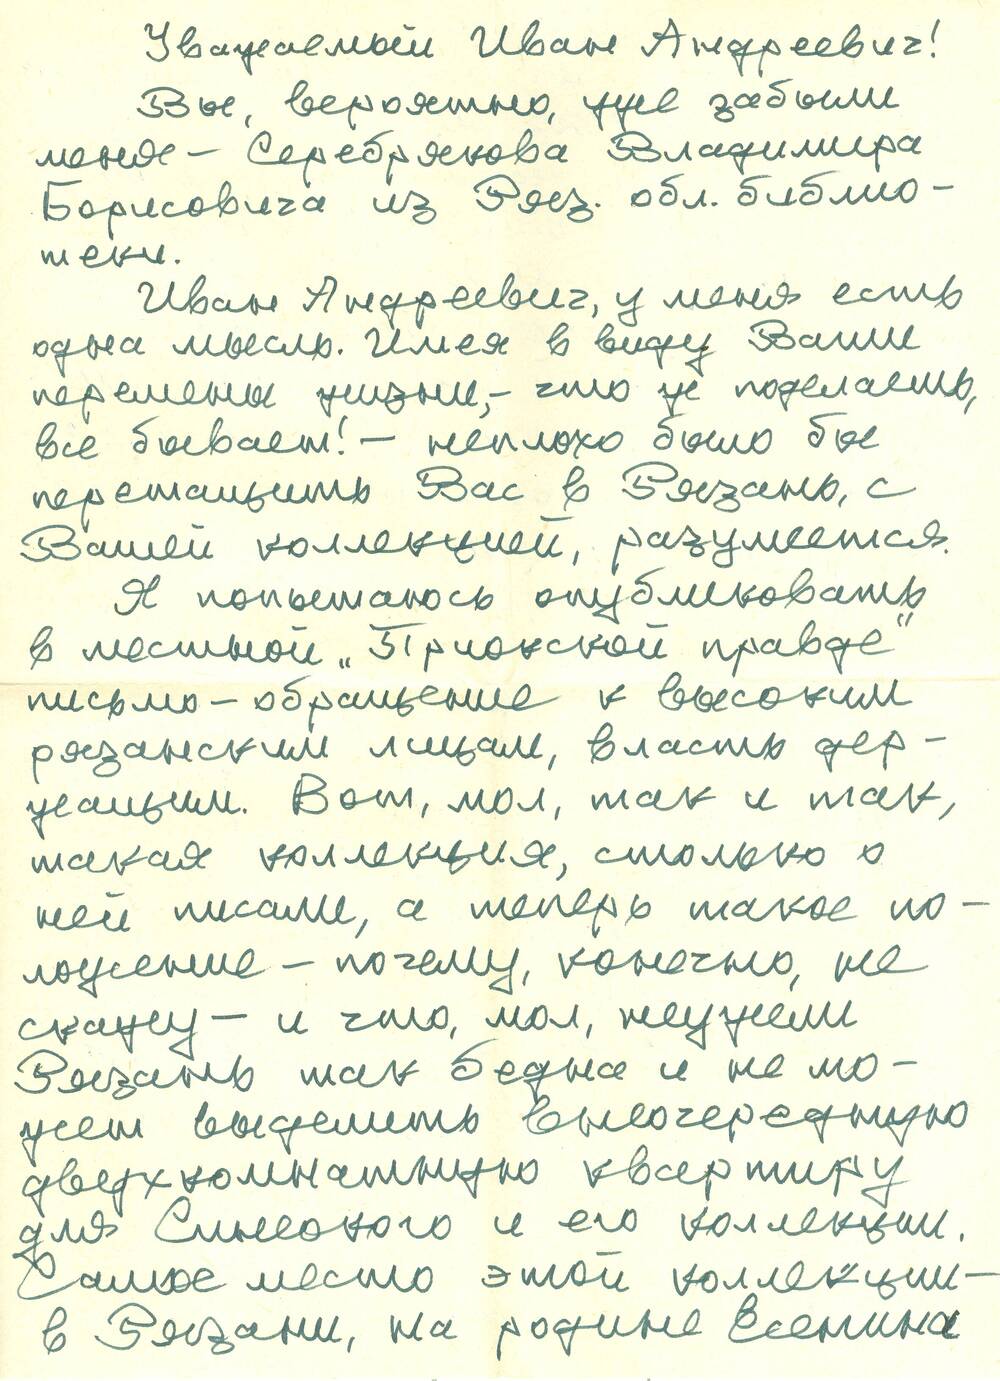 Уважаемый Иван Андреевич!
Вы, вероятно, уже забыли
меня – Серебрякова Владимира
Борисовича из Ряз. обл. библио-
теки.
Иван Андреевич, у меня есть
одна мысль. Имея в виду Ваши
перемены жизни, – что ж поделаешь,
все бывает! – неплохо было бы
перетащить Вас в Рязань, с
Вашей коллекцией, разумеется.
Я попытаюсь опубликовать
в местной „Приокской правде"
письмо – обращение к высоким
рязанским лицам, власть дер-
жащим. Вот, мол, так и так,
такая коллекция, столько о
ней писали, а теперь такое по-
ложение – почему, конечно, не
скажу – и что, мол, неужели
Рязань так бедна и не мо-
жет выделить внеочередную
двухкомнатную квартиру
для Синеокого и его коллекции.
Самое место этой коллекции –
в Рязани, на родине Есенина